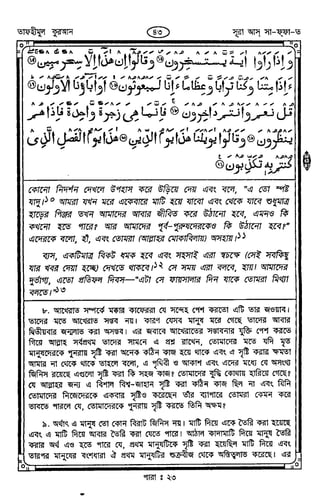 তাফহীমুল কুরআন
৪৩
সূরা আস্ সা-ফ্ফা-ত
وَإِذَا رَأَوْا آيَةً يَسْتَسْخِرُونَ ⑭ وَقَالُوا إِنْ هَٰذَا إِلَّا سِحْرٌ مُّبِينٌ ⑮
ءَإِذَا مِتْنَا وَكُنَّا تُرَابًا وَعِظَامًا ءَإِنَّا لَمَبْعُوثُونَ ⑯ أَوَآبَاؤُنَا الْأَوَّلُونَ ⑰
قُلْ نَعَمْ وَأَنْتُمْ دَاخِرُونَ ⑱ فَإِنَّمَا هِيَ زَجْرَةٌ وَاحِدَةٌ فَإِذَا هُمْ
يَنْظُرُونَ ⑲ وَقَالُوا يَا وَيْلَنَا هَٰذَا يَوْمُ الدِّينِ ⑳ هَٰذَا يَوْمُ الْفَصْلِ الَّذِي
كُنْتُمْ بِهِ تُكَذِّبُونَ ㉑
কোনো নিদর্শন দেখলে উপহাস করে উড়িয়ে দেয় এবং বলে, “এ তো স্পষ্ট
যাদু।১০ আমরা যখন মরে একেবারে মাটি হয়ে যাবো এবং থেকে যাবে শুধুমাত্র
হাড়ের পিঞ্জর তখন আমাদের আবার জীবিত করে উঠানো হবে, এমনও কি
কখনো হতে পারে? আর আমাদের পূর্ব-পুরুষদেরকেও কি উঠানো হবে?”
এদেরকে বলো, হাঁ, এবং তোমরা (আল্লাহর মোকাবিলায়) অসহায়।১১
ব্যস, একটিমাত্র বিকট ধমক হবে এবং সহসাই এরা স্বচক্ষে (সেই সবকিছু
যার খবর দেয়া হচ্ছে) দেখতে থাকবে।১২ সে সময় এরা বলবে, হায়! আমাদের
দুর্ভাগ্য, এতো প্রতিফল দিবস—“এটা সে ফায়সালার দিন যাকে তোমরা মিথ্যা
বলতে।”১৩
৮. আখেরাত সম্পর্কে মক্কার কাফেররা যে সন্দেহ পেশ করতো এটি তার জওয়াব।
তাদের মতে আখেরাত সম্ভব নয়। কারণ যেসব মানুষ মরে গেছে তাদের আবার
দ্বিতীয়বার জন্মলাভ করা অসম্ভব। এর জবাবে আখেরাতের সম্ভাবনার যুক্তি পেশ করতে
গিয়ে আল্লাহ সর্বপ্রথম তাদের সামনে এ প্রশ্ন রাখেন, তোমাদের মতে যদি মৃত
মানুষদেরকে পুনরায় সৃষ্টি করা অনেক কঠিন কাজ হয়ে থাকে এবং এ সৃষ্টি করার ক্ষমতা
আমার না থেকে থাকে তাহলে বলো, এ পৃথিবী ও আকাশ এবং এদের মধ্যে যে অসংখ্য
জিনিস রয়েছে এগুলো সৃষ্টি করা কি সহজ কাজ? তোমাদের বুদ্ধি কোথায় হারিয়ে গেছে?
যে আল্লাহর জন্য এ বিশাল বিশ্ব-জাহান সৃষ্টি করা কঠিন কাজ ছিল না এবং যিনি
তোমাদের নিজেদেরকে একবার সৃষ্টিও করেছেন তাঁর ব্যাপারে তোমরা কেমন করে
ভাবতে পারলে যে, তোমাদেরকে পুনরায় সৃষ্টি করতে তিনি অক্ষম?
৯. অর্থাৎ এ মানুষ তো কোন বিরাট জিনিস নয়। মাটি দিয়ে একে তৈরি করা হয়েছে
এবং এ মাটি দিয়ে আবার তৈরি করা যেতে পারে। আঠাল কাদামাটি দিয়ে মানুষ তৈরি
করার অর্থ এও হতে পারে যে, প্রথম মানুষটিকে সৃষ্টি করা হয়েছিল মাটি দিয়ে এবং
তারপর মানুষের বংশধারা ঐ প্রথম মানুষটির শুক্রবীজ থেকে অস্তিত্বলাভ করেছে। এর
পারা : ২৩